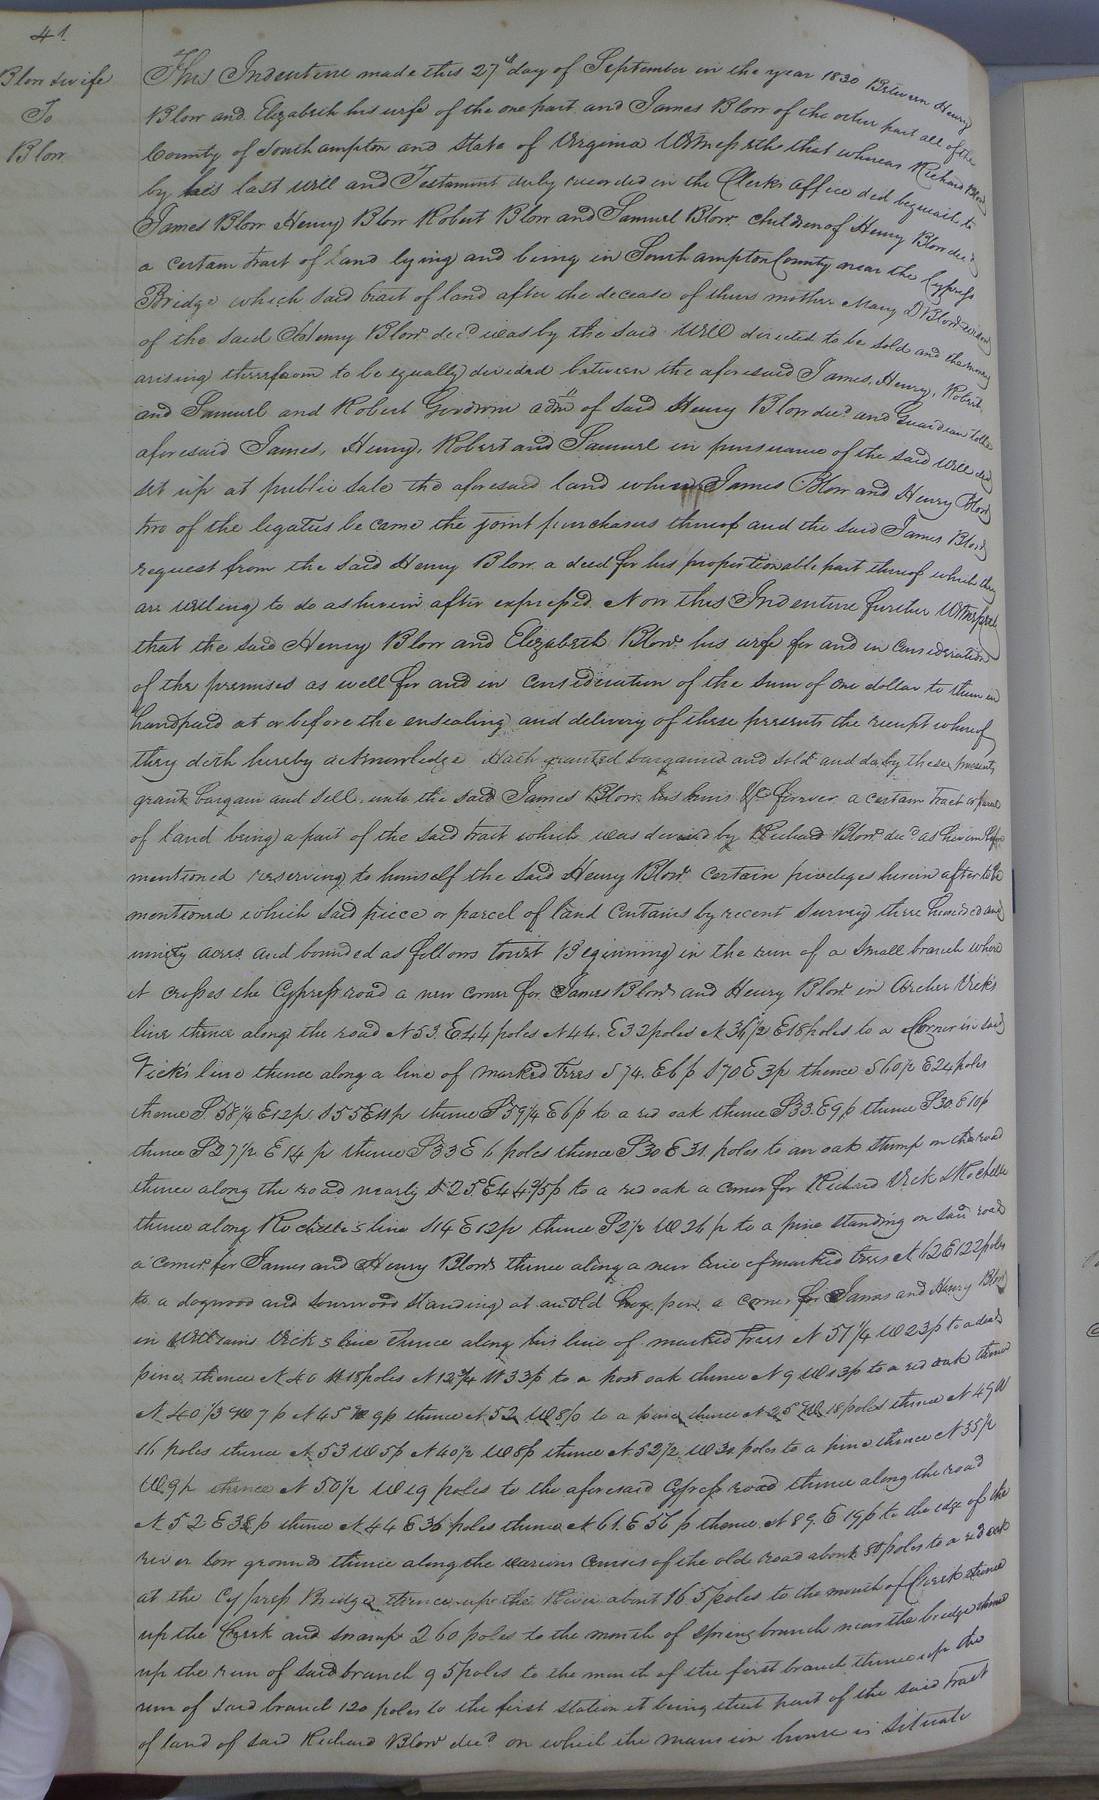 41.
Blow & wife
To
Blow
This Indenture made this 27th day of September in the year 1830 Between Henry
Blow and Elizabeth his wife of the one part and James Blow of the other part all of the
County of Southampton and State of Virginia Witnesseth that whereas Richard Blow
by his last will and Testament duly recorded in the Clerks office did bequeath to
James Blow Henry Blow Robert Blow and Samuel Blow children of Henry Blow decd
a certain tract of land lying and being in Southampton County near the Cypress
Bridge which said tract of land after the decease of thier mother Mary D Blow widow
of the said Henry Blow decd was by the said Will directed to be sold and the money
arising therefrom to be equally devided between the aforesaid James, Henry, Robert
and Samuel and Robert Goodwin admr of said Henry Blow decd and Guardian to the
aforesaid James, Henry, Robert and Samuel in pursuance of the said will did
set up at public sale the aforesaid land when James Blow and Henry Blow
two of the legatus be came the joint purchasers thereof and the said James Blow
request from the said Henry Blow a deed for his proportionable part thereof which they
are willing to do as herein after expressed. Now this Indenture further Witnesseth
that the said Henry Blow and Elizabeth Blow his wife for and in consideration
of the premises as well for and in consideration of the sum of one dollar to them in
hand paid at or before the ensealing and delivery of these presents the receipt whereof
they doth hereby acknowledge Hath granted bargained and sold and do by these presents
grant bargain and sell unto the said James Blow his heirs &c forever a certain tract or parcel
of land being a part of the said tract which was devised by Richard Blow decd as herein before
mentioned reserving to himself the said Henry Blow certain priveleges herein after to be
mentioned which said piece or parcel of land Contains by recent survey three hundred and
ninety acres and bounded as follows towit Beginning in the run of a small branch where
it crosses the Cypress road a new corner for James Blow and Henry Blow in Archer Vick's
line thence along the road N 53. E 44 poles N 44. E 32 poles N 36 1/2 E 18 poles to a Corner in said
Vick's line thence along a line of marked trees S 74. E 6 p S 70 E 3p thence S 60 1/2 E 24 poles
thence S. 58 1/4 E 12 p. S 55 E 11 p thence S 59 1/4 E 6 p to a red oak thence S 33. E 9 p thence S 30. E 10 p
thence S 27 1/2 E 14 p thence S 33 E 6 poles thence S 30 E 31. poles to an oak stump on the road
thence along the road nearly S 25. E 44 p to a red oak a corner for Richard Vick & Rochelle
thence along Rochelle's line S 14 E 12 p thence S 2 1/2 W 26 p to a pine standing on said road
a corner for James and Henry Blow thence along a new line of marked trees N 62 E 122 poles
to a dogwood and sourwood standing at an old hog pen a corner for James and Henry Blow
in Williams Vick's line thence along his line of marked trees N 57 1/4 W 23 p to a dead
pine thence N 40 W 18 poles N 12 3/4 W 33 p to a post oak thence N 9 W 13 p to a red oak thence
N 40 1/3 W 7 p N 45 W 9p thence N. 52 W 8 p to a pine thence N 25 W 18 poles thence N 49 W
16 poles thence N 53 W 5 p N 40 1/2 W 8 p thence N. 52 1/2 W 30 poles to a pine thence N 35 1/2
W 9 p thence N 50 1/2 W 19 poles to the aforesaid Cypress road thence along the road
N 52 E 38 p thence N 44 E 36 poles thence N 61. E 56 p thence N 89. E 19 p to the edge of the
river low grounds thence along the various courses of the old road about 80 poles to a red oak
at the Cypress Bridge thence up the River about 165 poles to the mouth of Creek thence
up the Creek and swamp 260 poles to the mouth of spring branch near the bridge thence
up the run of said branch 95 poles to the mouth of the first branch thence up the
run of said branch 120 poles to the first station it being that part of the said tract
of land of said Richard Blow decd on which the mansion house is situate